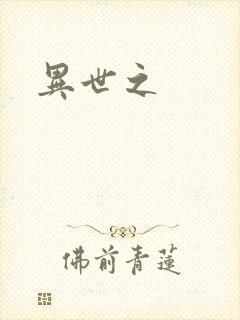 異世之
佛前青蓮